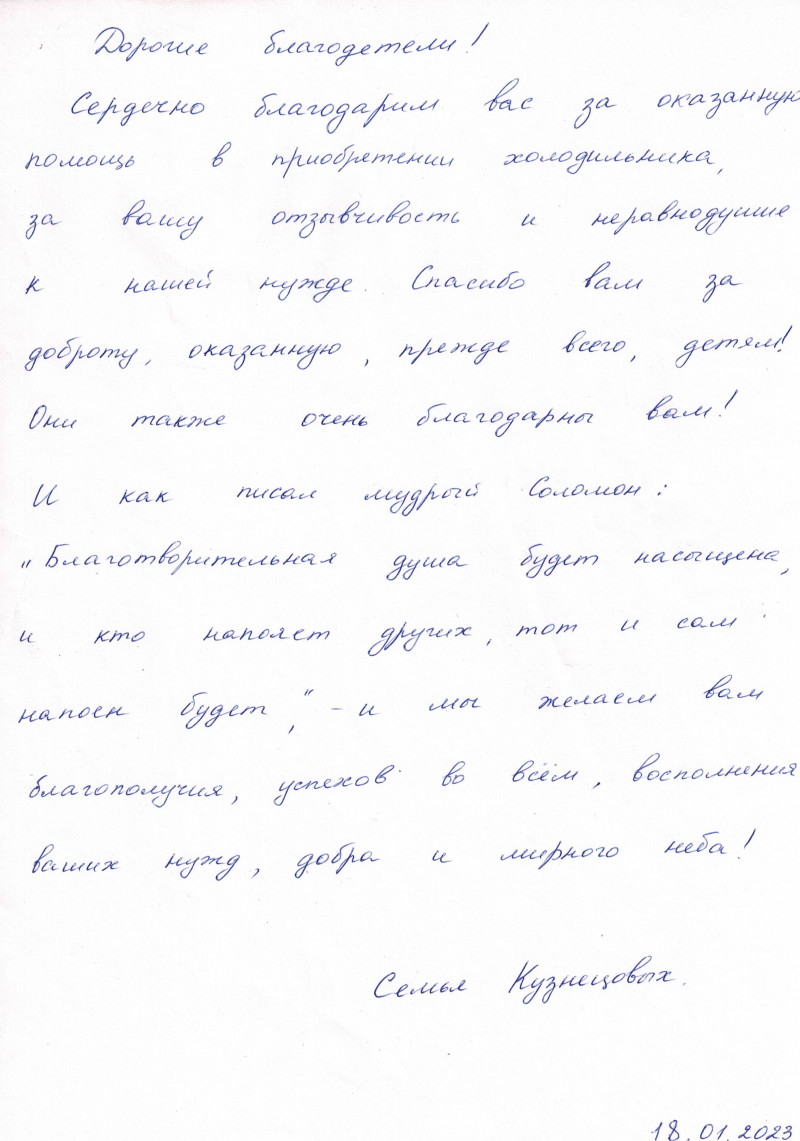 Дорогие благодетели!
Сердечно благодарим вас за оказанную
помощь в приобретении холодильника,
за вашу отзывчивость и неравнодушие
к нашей нужде. Спасибо вам за
доброту, оказанную, прежде всего, детям!
Они также очень благодарны вам!
И как писал мудрый Соломон:
„Благотворительная душа будет насыщена,
и кто напояет других, тот и сам
напоен будет", - и мы желаем вам
благополучия, успехов во всём, восполнения
ваших нужд, добра и мирного неба!
Семья Кузнецовых.
18.01.2023